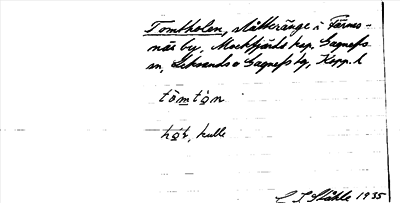 Tomtholen, slåtteränge i Färnäs-
näs by, Mockfjärds kap. Gagnefs
sn, Leksands o Gagnefs tg, Kopp. l
tòmtòn
hól, kulle
C I Ståhle 1935